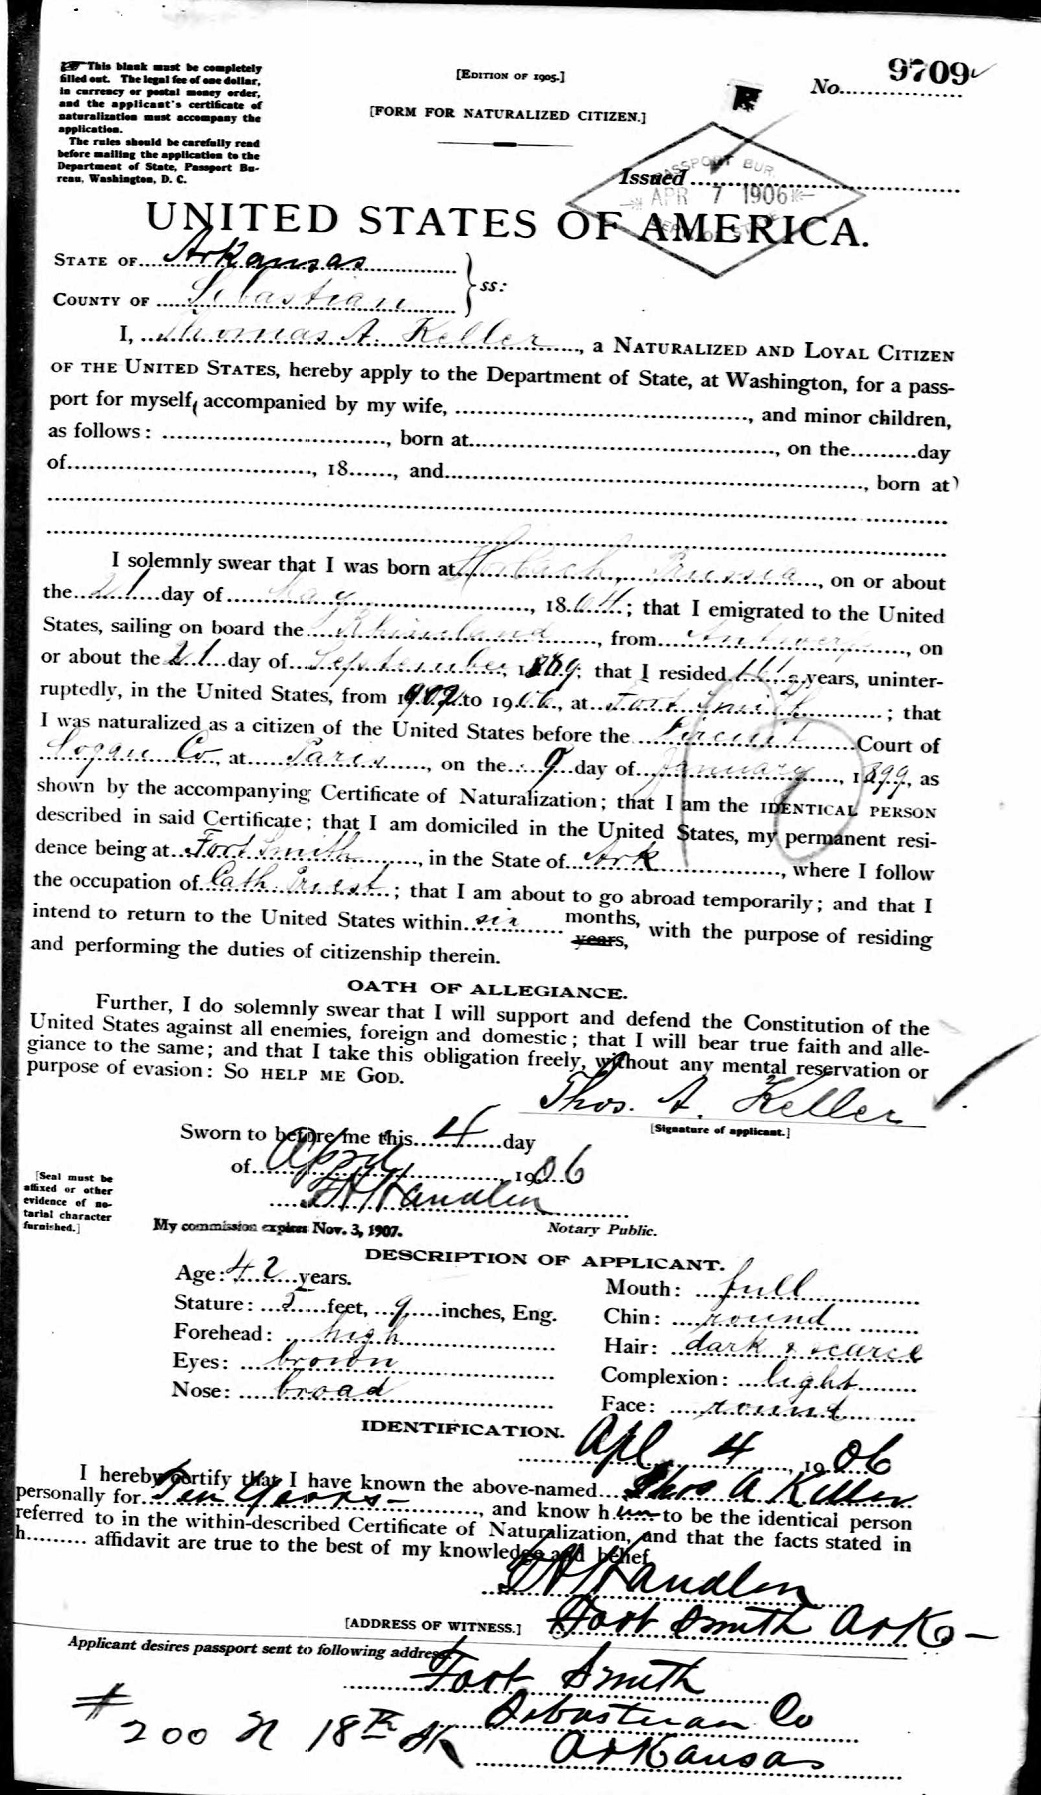 ☞ This blank must be completely
filled out. The legal fee of one dollar,
in currency or postal money order,
and the applicant's certificate of
naturalization must accompany the
application.
The rules should be carefully read
before mailing the application to the
Department of State, Passport Bu-
reau, Washington, D. C.
[EDITION OF 1905.]
[FORM FOR NATURALIZED CITIZEN.]
No. 9709
Issued
PASSPORT BUR.
APR 7 1906
DEPT. OF STATE
UNITED STATES OF AMERICA.
STATE OF Arkansas
COUNTY OF Sebastian } ss:
I, Thomas A. Keller, a NATURALIZED AND LOYAL CITIZEN
OF THE UNITED STATES, hereby apply to the Department of State, at Washington, for a pass-
port for myself, accompanied by my wife, , and minor children,
as follows: , born at , on the day
of , 18 , and , born at
I solemnly swear that I was born at Horbach, Prussia, on or about
the 21 day of May, 1864; that I emigrated to the United
States, sailing on board the Rhineland, from Antwerp, on
or about the 21 day of September, 1889; that I resided years, uninter-
ruptedly, in the United States, from to 1906, at Fort Smith; that
I was naturalized as a citizen of the United States before the Circuit Court of
Logan Co., at Paris, on the 9 day of January, 1899, as
shown by the accompanying Certificate of Naturalization; that I am the IDENTICAL PERSON
described in said Certificate; that I am domiciled in the United States, my permanent resi-
dence being at Fort Smith, in the State of Ark, where I follow
the occupation of Cath. Priest; that I am about to go abroad temporarily; and that I
intend to return to the United States within six months, years, with the purpose of residing
and performing the duties of citizenship therein.
OATH OF ALLEGIANCE.
Further, I do solemnly swear that I will support and defend the Constitution of the
United States against all enemies, foreign and domestic; that I will bear true faith and alle-
giance to the same; and that I take this obligation freely, without any mental reservation or
purpose of evasion: SO HELP ME GOD.
Thos. A. Keller
[Signature of applicant.]
Sworn to before me this 4 day
of April, 1906
Handlin
Notary Public.
[Seal must be
affixed or other
evidence of no-
tarial character
furnished.]
My commission expires Nov. 3, 1907.
DESCRIPTION OF APPLICANT.
Age: 42 years.
Mouth: full
Stature: 5 feet, 9 inches, Eng.
Chin: round
Forehead: high
Hair: dark & scarce
Eyes: brown
Complexion: light
Nose: broad
Face: round
IDENTIFICATION.
Apl 4, 1906
I hereby certify that I have known the above-named Thos A Keller
personally for Ten Years, and know him to be the identical person
referred to in the within-described Certificate of Naturalization, and that the facts stated in
h affidavit are true to the best of my knowledge and belief.
Handlin
[ADDRESS OF WITNESS.] Fort Smith Ark
Applicant desires passport sent to following address:
Fort Smith
Sebastian Co
# 200 N 18th St
Arkansas